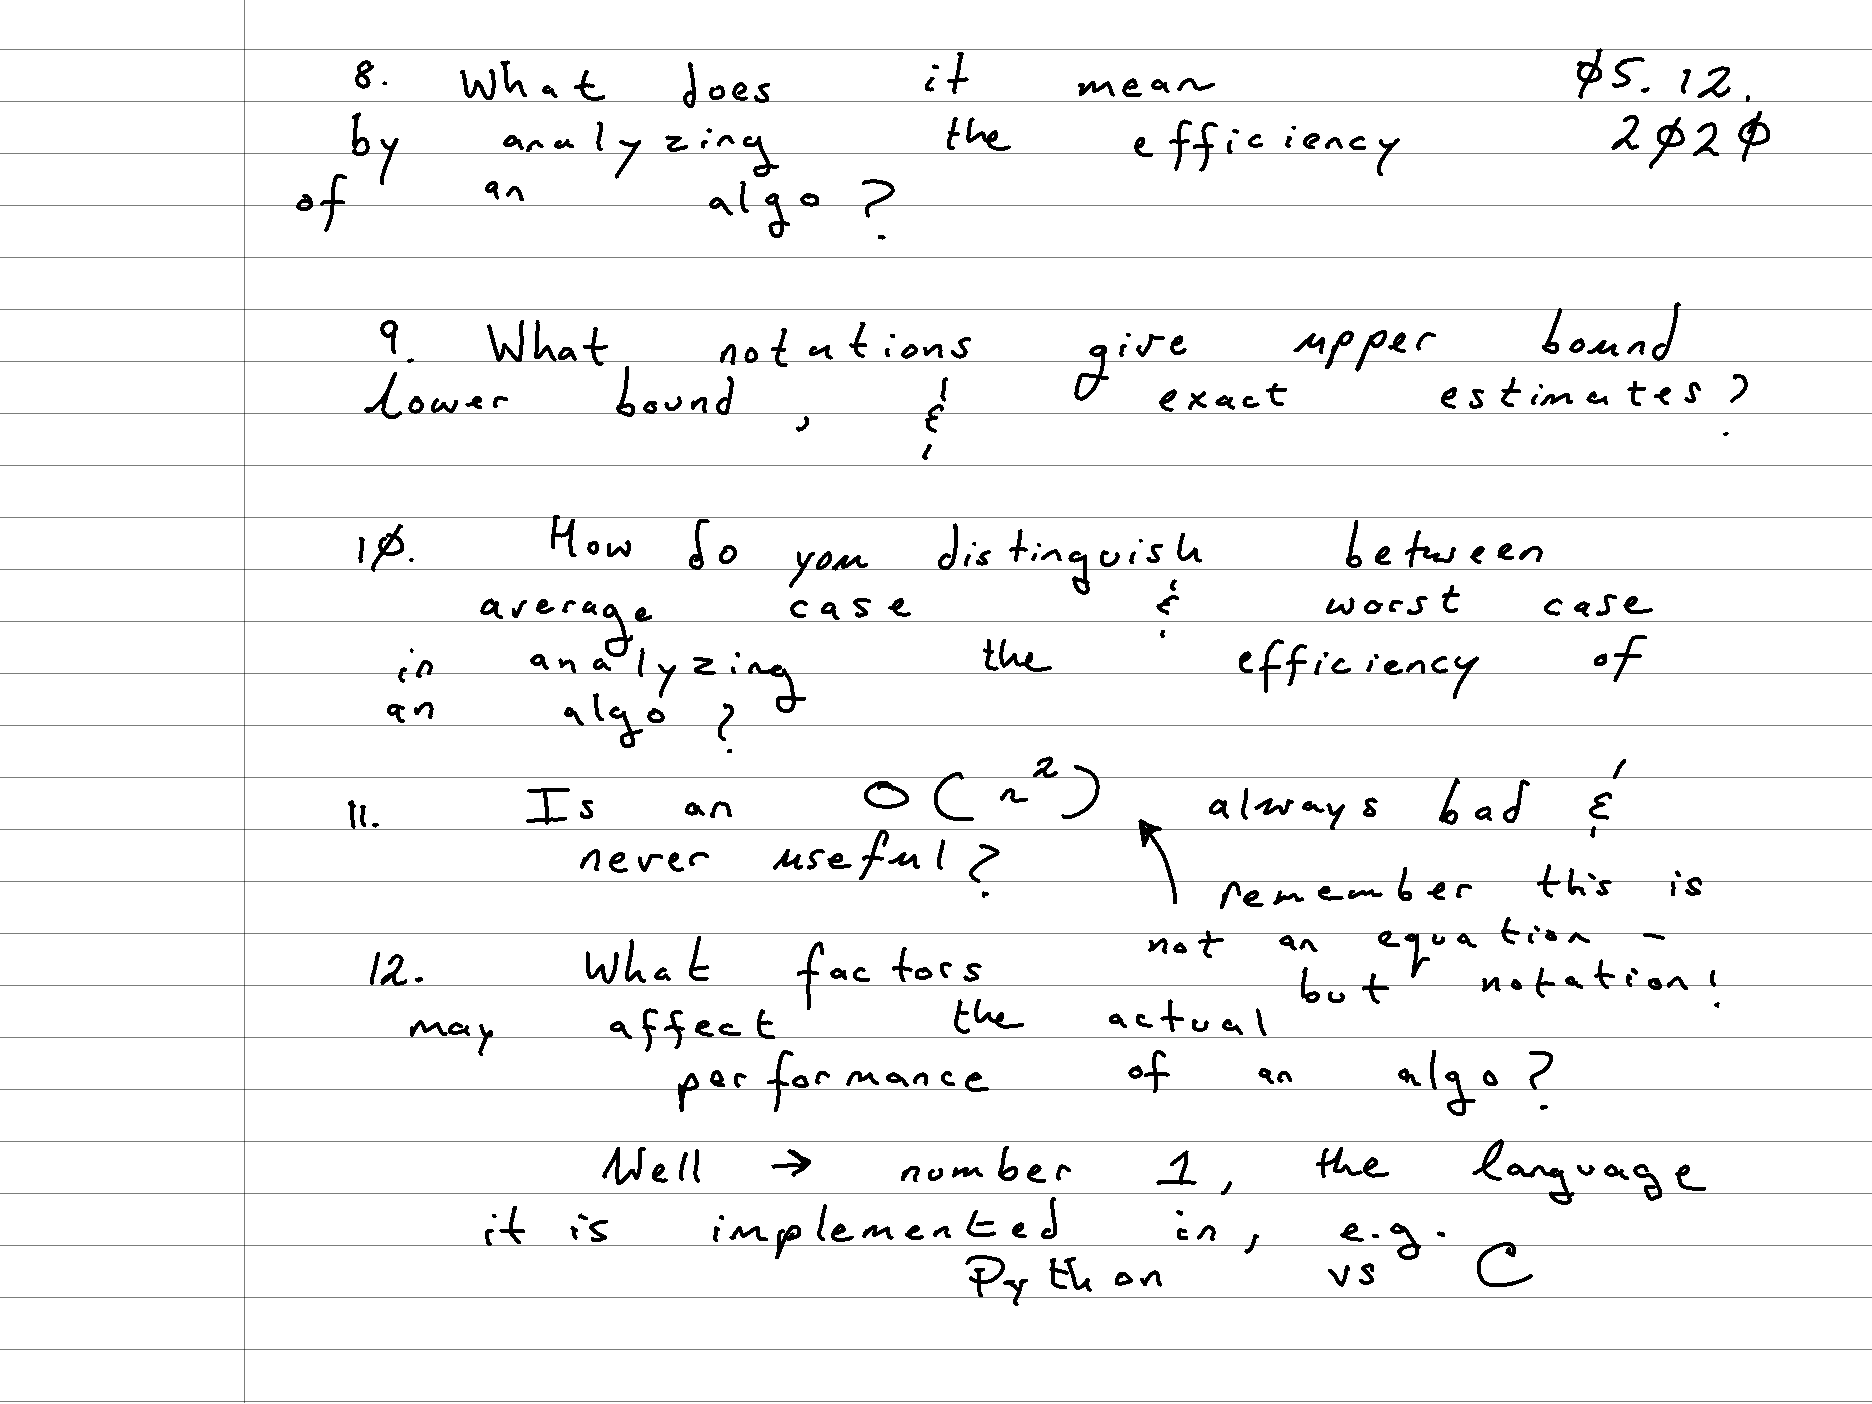 8. What does it mean ø5.12.
by analyzing the efficiency 2ø2ø
of an algo?
9. What notations give upper bound
lower bound, & exact estimates?
1ø. How do you distinguish between
average case & worst case
in analyzing the efficiency of
an algo?
11. Is an O(n²) always bad &
never useful?
remember this is
not an equation -
but notation!
12. What factors
may affect the actual
performance of an algo?
Well → number 1, the language
it is implemented in, e.g.
Python vs C